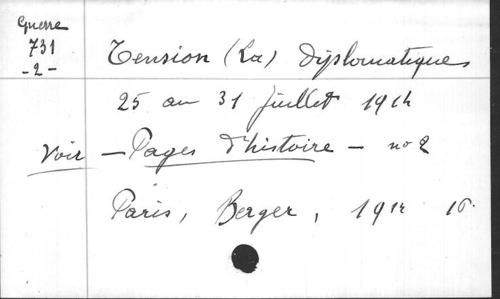 Guerre
731
-2-
Tension (La) diplomatique
25 au 31 juillet 1914
Voir - Pages d'histoire - no 2
Paris, Berger, 1914 16°